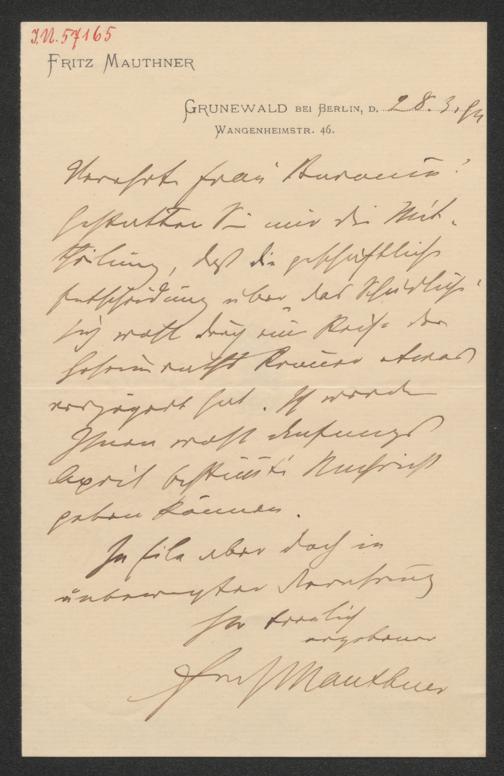 J.N. 57165
FRITZ MAUTHNER
GRUNEWALD BEI BERLIN, D. 28.3.94
WANGENHEIMSTR. 46.
Verehrte Frau Baronin!
Gestatten Sie mir die Mit-
theilung, daß die geschäftliche
Entscheidung über das
sich wohl durch eine Reise des
Geheimraths etwas
verzögert hat. Ich werde
Ihnen wohl Anfangs
April bestimmte Nachricht
geben können.
In Eile aber doch in
unbewegter Verehrung
Ihr treulich
ergebener
Fritz Mauthner